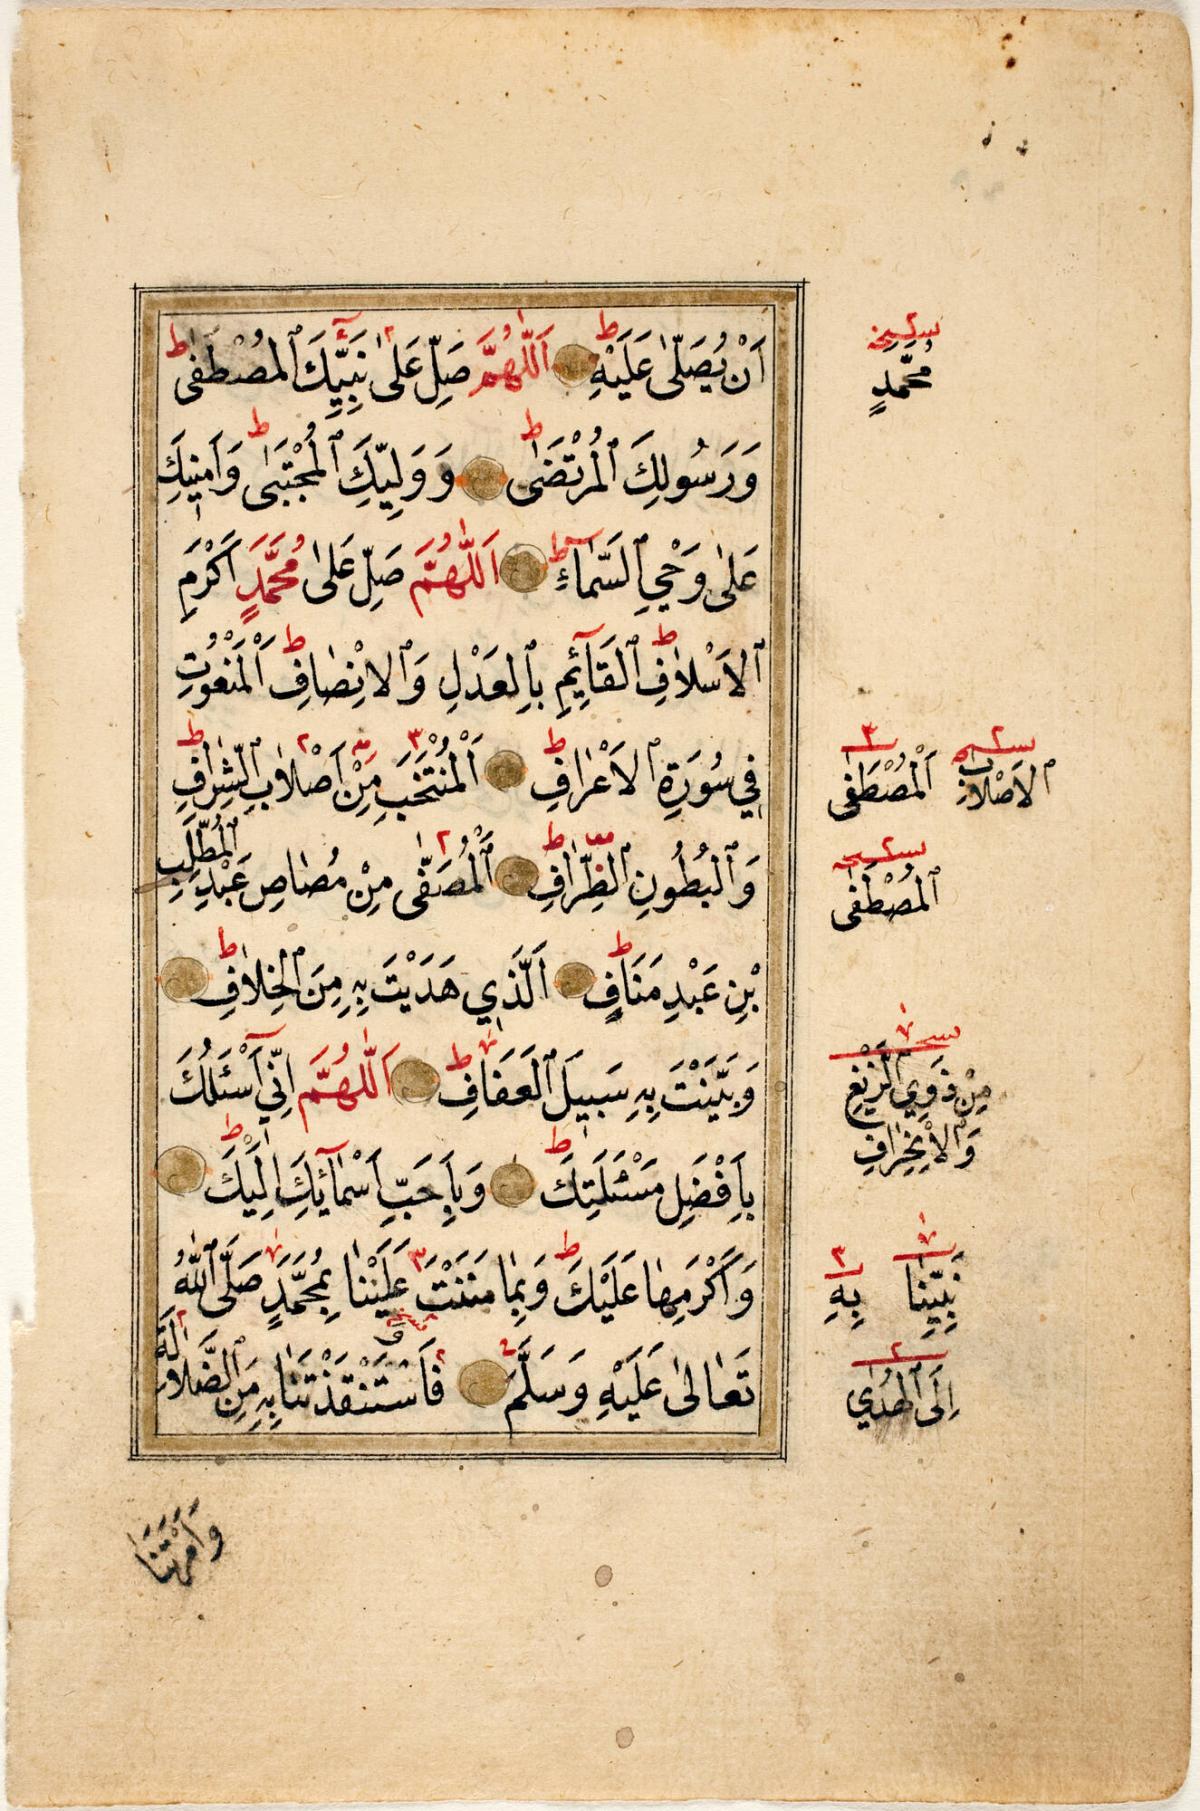 اَنْ يُصَلّٰى عَلَيْهِ اَللّٰهُمَّ صَلِّ عَلٰى نَبِيِّكَ الْمُصْطَفٰى
وَرَسُولِكَ الْمُرْتَضٰى وَوَلِيِّكَ الْمُجْتَبٰى وَاَمِينِكَ
عَلٰى وَحْيِ السَّمَاءِ اَللّٰهُمَّ صَلِّ عَلٰى مُحَمَّدٍ اَكْرَمِ
الْاَسْلَافِ الْقَائِمِ بِالْعَدْلِ وَالْاِنْصَافِ اَلْمَنْعُوتِ
فِي سُورَةِ الْاَعْرَافِ اَلْمُنْتَخَبِ مِنْ اَصْلَابِ الشِّرَافِ
وَالْبُطُونِ الظِّرَافِ اَلْمُصَفّٰى مِنْ مُصَاصِ عَبْدِ الْمُطَّلِبِ
بْنِ عَبْدِ مَنَافٍ اَلَّذِي هَدَيْتَ بِهِ مِنَ الْخِلَافِ
وَبَيَّنْتَ بِهِ سَبِيلَ الْعَفَافِ اَللّٰهُمَّ اِنِّي اَسْئَلُكَ
بِاَفْضَلِ مَسْئَلَتِكَ وَبِاَحَبِّ اَسْمَائِكَ اِلَيْكَ
وَاَكْرَمِهَا عَلَيْكَ وَبِمَا مَنَنْتَ عَلَيْنَا بِمُحَمَّدٍ صَلَّى اللّٰهُ
تَعَالٰى عَلَيْهِ وَسَلَّمَ فَاسْتَنْقَذْتَنَا بِهِ مِنَ الضَّلَالَةِ
وَاَمَرْتَنَا
نسخة
مُحَمَّدٍ
نسخة ٣
الْاَصْلَابِ اَلْمُصْطَفٰى
نسخة
الْمُصْطَفٰى
مِنْ ذَوِي الزَّيْغِ
وَالْاِنْحِرَافِ
٧ ٣
نَبِيِّنَا بِهِ
٢
اِلَى الْهُدٰي